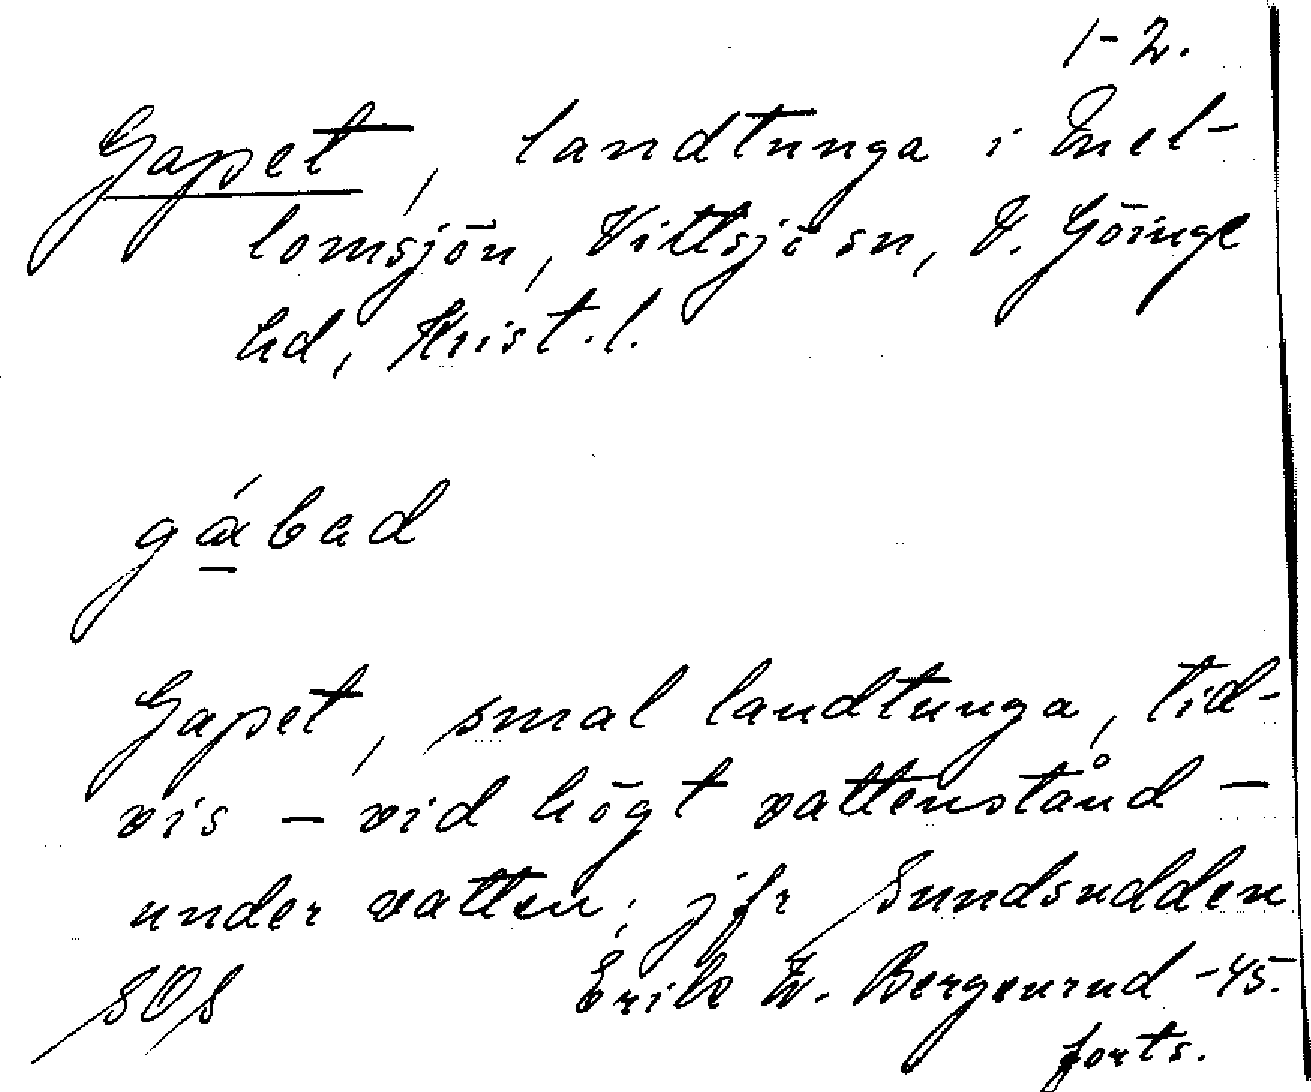 1-2.
Gapet, landtunga i Emel-
lomsjön, Vittsjö sn, V. Göinge
hd, Krist. l.
gábad
Gapet, smal landtunga, tid-
vis – vid högt vattenstånd –
under vatten; jfr Sundsudden
SOS Erik W. Bergenrud -45.
forts.